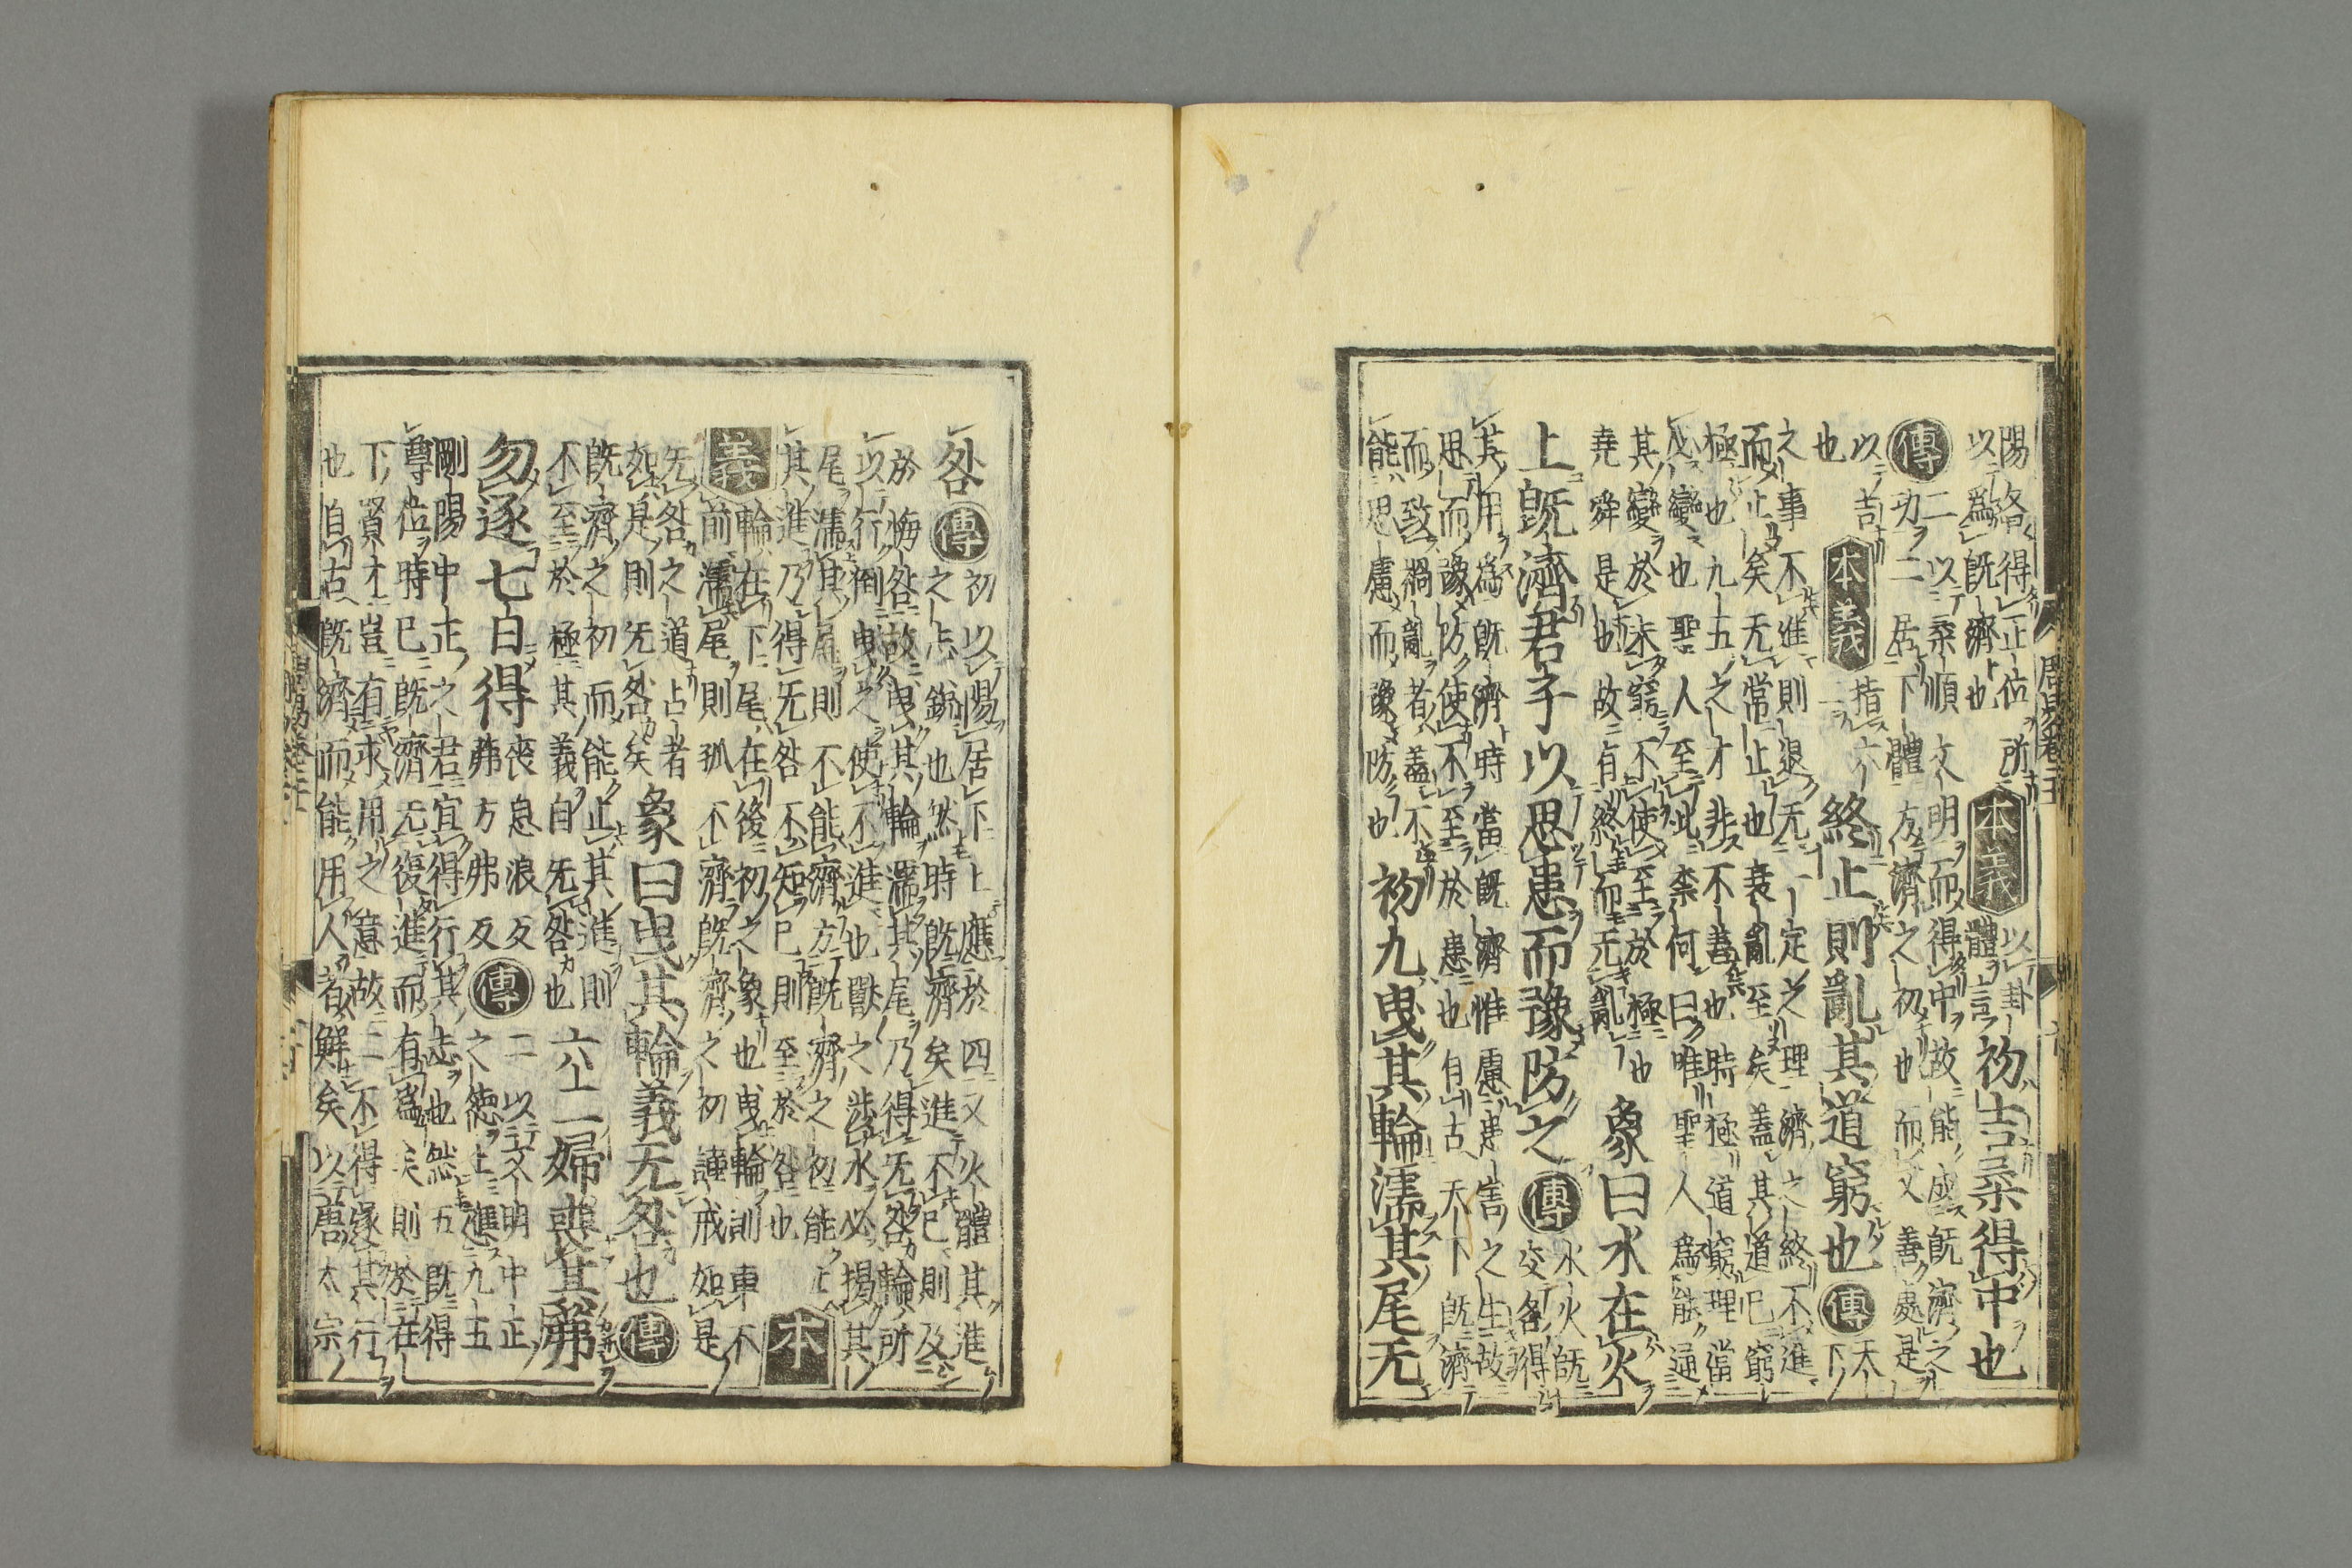 陽各得正位所
以爲既濟也
本義
以卦
體言
初吉柔得中也
傳
二以柔順文明而得中故能成既濟之
功二居下體方濟之初也而又善處是
以吉
也
本義
指六
二
終止則亂其道窮也
傳
天
下
之事不進則退无一定之理濟之終不進
而止矣无常止也衰亂至矣蓋其道已窮
極也九五之才非不善也時極道窮理當
必變也聖人至此柰何曰唯聖人爲能通
其變於未窮不使至於極也
堯舜是也故有終而无亂
象曰水在火
上既濟君子以思患而豫防之
傳
水火既
交各得
其用爲既濟時當既濟惟慮患害之生故
思而豫防使不至於患也自古天下既濟
而致禍亂者蓋不
能思慮而豫防也
初九曳其輪濡其尾无
咎
傳
初以陽居下上應於四又火體其進
之志銳也然時既濟矣進不已則及
於悔咎故曳其輪濡其尾乃得无咎輪所
以行倒曳之使不進也獸之涉水必揭其
尾濡其尾則不能濟方既濟之初能止
其進乃得无咎不知已則至於咎也
本
義
輪在下尾在後初之象也曳輪則車不
前濡尾則狐不濟既濟之初謹戒如是
无咎之道占者
如是則无咎矣
象曰曳其輪義无咎也
傳
既濟之初而能止其進則
不至於極其義自无咎也
六二婦喪其茀
勿逐七日得
喪息浪反
茀方弗反
傳
二以文明中正
之德上應九五
剛陽中正之君宜得行其志也然五既得
尊位時已既濟无復進而有爲矣則於在
下賢才豈有求用之意故二不得遂其行
也自古既濟而能用人者鮮矣以唐太宗